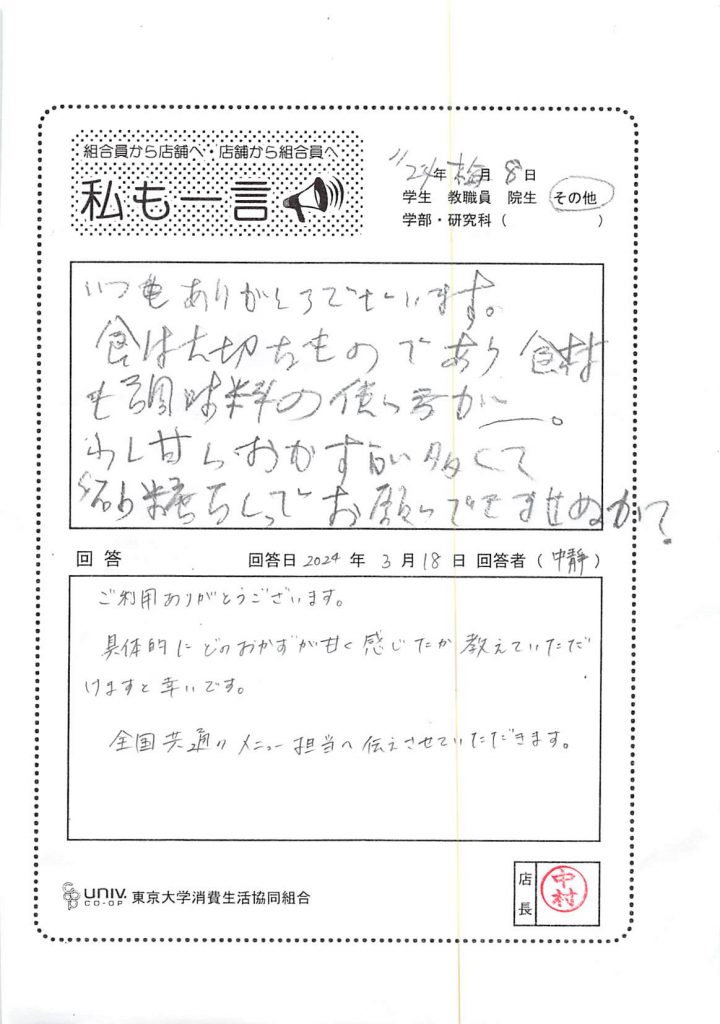 組合員から店舗へ・店舗から組合員へ
私も一言
'24年 梅月 8日
学生 教職員 院生 その他
学部・研究科( )
いつもありがとうございます。
食は大切なものであり食材
も調味料の使い方が 。
少し甘いおかずが多くて
砂糖ちょっとお願いできませぬか?
回答 回答日 2024年 3月 18日 回答者(中静)
ご利用ありがとうございます。
具体的にどのおかずが甘く感じたか教えていただ
けますと幸いです。
全国共通のメニュー担当へ伝えさせていただきます。
UNIV. CO-OP 東京大学消費生活協同組合
店長 中村